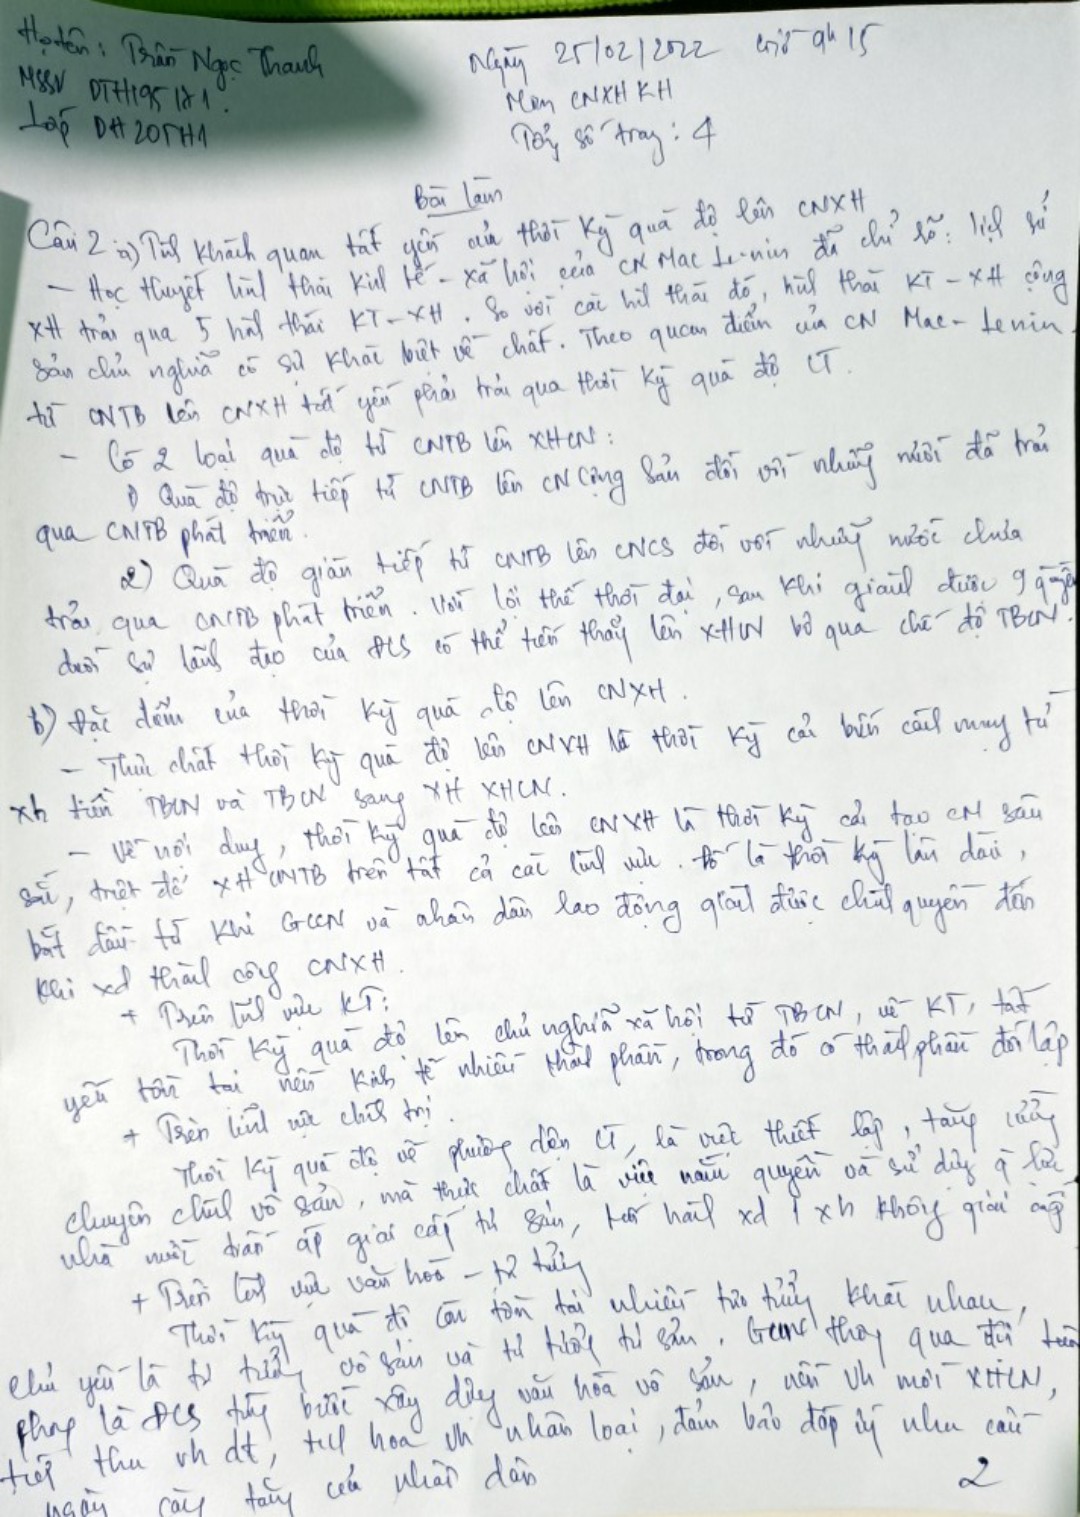 Họ tên: Trần Ngọc Thanh
Ngày 25/02/2022 giờ 9h15
MSSV DTH195171.
Môn CNXHKH
Lớp DH20TH1
Tổng số trang: 4
Bài làm
Câu 2 a) Tính khách quan tất yếu của thời kỳ quá độ lên CNXH
- Học thuyết hình thái kinh tế - xã hội của CN Mac Le-nin đã chỉ rõ: lịch sử
XH trải qua 5 hình thái KT-XH. So với các hình thái đó, hình thái KT-XH cộng
sản chủ nghĩa có sự khác biệt về chất. Theo quan điểm của CN Mac-Lenin.
từ CNTB lên CNXH tất yếu phải trải qua thời kỳ quá độ CT.
- Có 2 loại quá độ từ CNTB lên XHCN:
1) Quá độ trực tiếp từ CNTB lên CN Cộng Sản đối với những nước đã trải
qua CNTB phát triển.
2) Quá độ gián tiếp từ CNTB lên CNCS đối với những nước chưa
trải qua CNTB phát triển. Với lợi thế thời đại, sau khi giành được quyền
dưới sự lãnh đạo của ĐCS có thể tiến thẳng lên XHCN bỏ qua chế độ TBCN.
b) Đặc điểm của thời kỳ quá độ lên CNXH.
- Thực chất thời kỳ quá độ lên CNXH là thời kỳ cải biến cách mạng từ
xh tiền TBCN và TBCN sang XH XHCN.
- Về nội dung, thời kỳ quá độ lên CNXH là thời kỳ cải tạo CM sâu
sắc, triệt để XH CNTB trên tất cả các lĩnh vực. Đó là thời kỳ lâu dài,
bắt đầu từ khi GCCN và nhân dân lao động giành được chính quyền đến
khi xd thành công CNXH.
+ Trên lĩnh vực KT:
Thời kỳ quá độ lên chủ nghĩa xã hội từ TBCN, về KT, tất
yếu tồn tại nền kinh tế nhiều thành phần, trong đó có thành phần đối lập
+ Trên lĩnh vực chính trị.
Thời kỳ quá độ về phương diện CT, là việc thiết lập, tăng cường
chuyên chính vô sản, mà thực chất là việc nắm quyền và sử dụng q lực
nhà nước trấn áp giai cấp tư sản, tiến hành xd 1 xh không giai cấp
+ Trên lĩnh vực văn hoá - tư tưởng
Thời kỳ quá độ còn tồn tại nhiều tư tưởng khác nhau,
chủ yếu là tư tưởng vô sản và tư tưởng tư sản. GCCN thông qua đội tiên
phong là ĐCS từng bước xây dựng văn hóa vô sản, nền vh mới XHCN,
tiếp thu vh dt, tinh hoa vh nhân loại, đảm bảo đáp ứng nhu cầu
ngày càng tăng của nhân dân
2